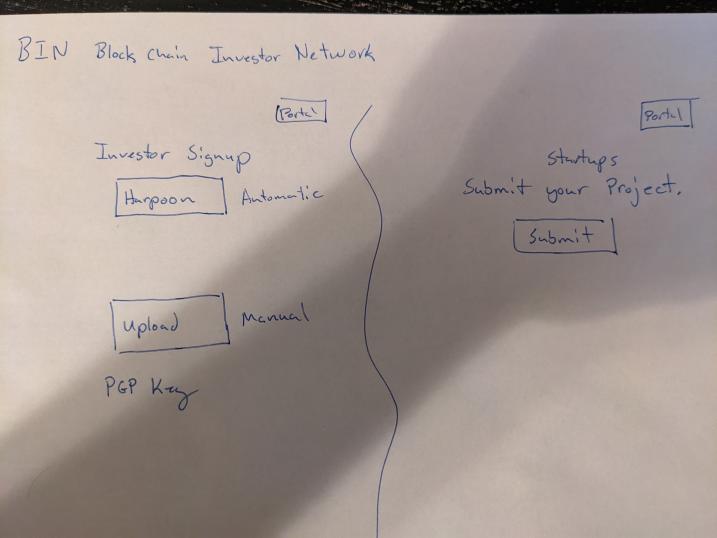 BIN Block Chain Investor Network
Portal
Investor Signup
Harpoon Automatic
Upload Manual
PGP Key
Portal
Startups
Submit your Project.
Submit